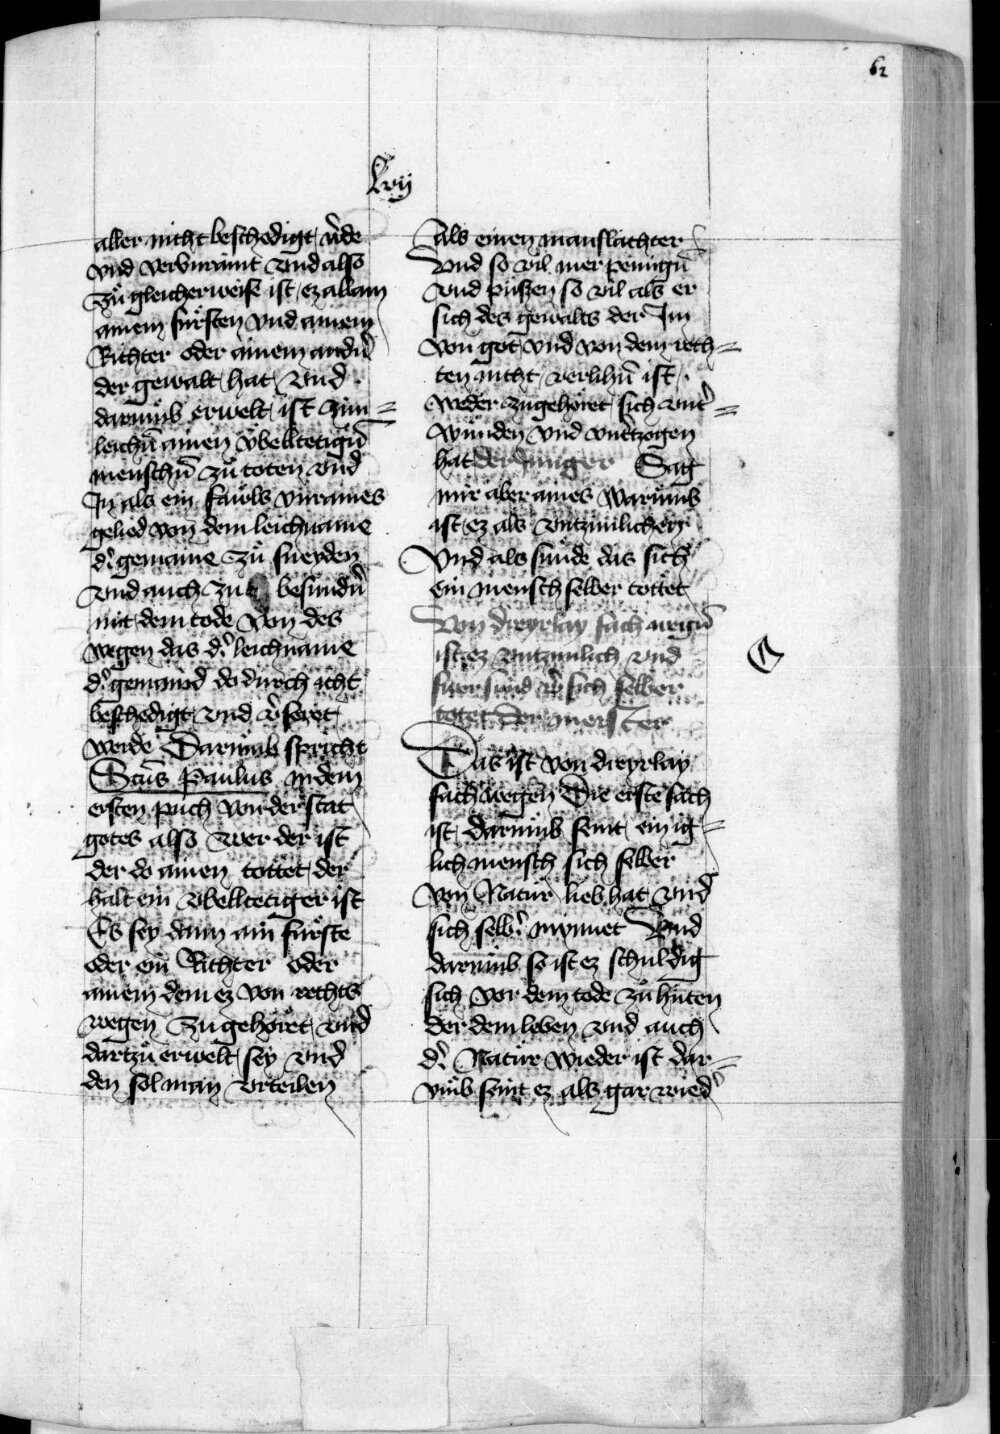 62
Lxij
aller nicht beschedigt w̄de
vnd vervnraint Vnd also
Zu gleicherweise ist ez allain
ainem fürsten vnd ainem
Richter oder ainem andn̄
der gewalt hat Vnd
darumb erwelt ist Zim=
leichn̄ ainen v̈belltetign̄
menschn̄ zu toten vnd
In als ein fauls vnraines
gelied von dem leichname
d' gemaine Zu sneyden
Vnd auch Zu besundn̄
mit dem tode von des
wegen das d' leichname
d' gemaind do durch icht
beschedigt vnd v̄seret
werde Darumb spricht
Sctūs Paulus In dem
ersten puch von der stat
gotes also Wer der ist
der do ainen tottet der
halt ein vbelltetiger ist
Es sey dann ain fürste
oder ein Richter oder
ainem dem ez von rechts
wegen Zu gehöret vnd
dartzu erwelt sey vnd
den sol man vrteilen
Als einen manslachter
Vnd so vil mer peinign̄
vnd püszen so vil als er
sich des gewalts der Im
von got vnd von dem rech=
ten nicht verlihn̄ ist
weder zugehöret sich vnt'=
wunden vnd vndtzogen
hat der Junger Sag
mir aber aines Warumb
ist ez als vntzimlichen
Vnd als sunde das sich
ein mensch selber tottet
Von dreyrlay sach wegn̄
ist ez vntzimlich vnd
swer sund w' sich selber
totet Der meister
Das ist von dreyrlay
sach wegen Die erste sach
ist darumb seint ein ig=
lich mensch sich selber
von Natur lieb hat vnd
sich selb' mynnet Vnd
darumb so ist ez schuldig
sich vor dem tode zu huten
der dem leben vnd auch
d' Natur wieder ist dar=
vmb seint ez als gar wied'